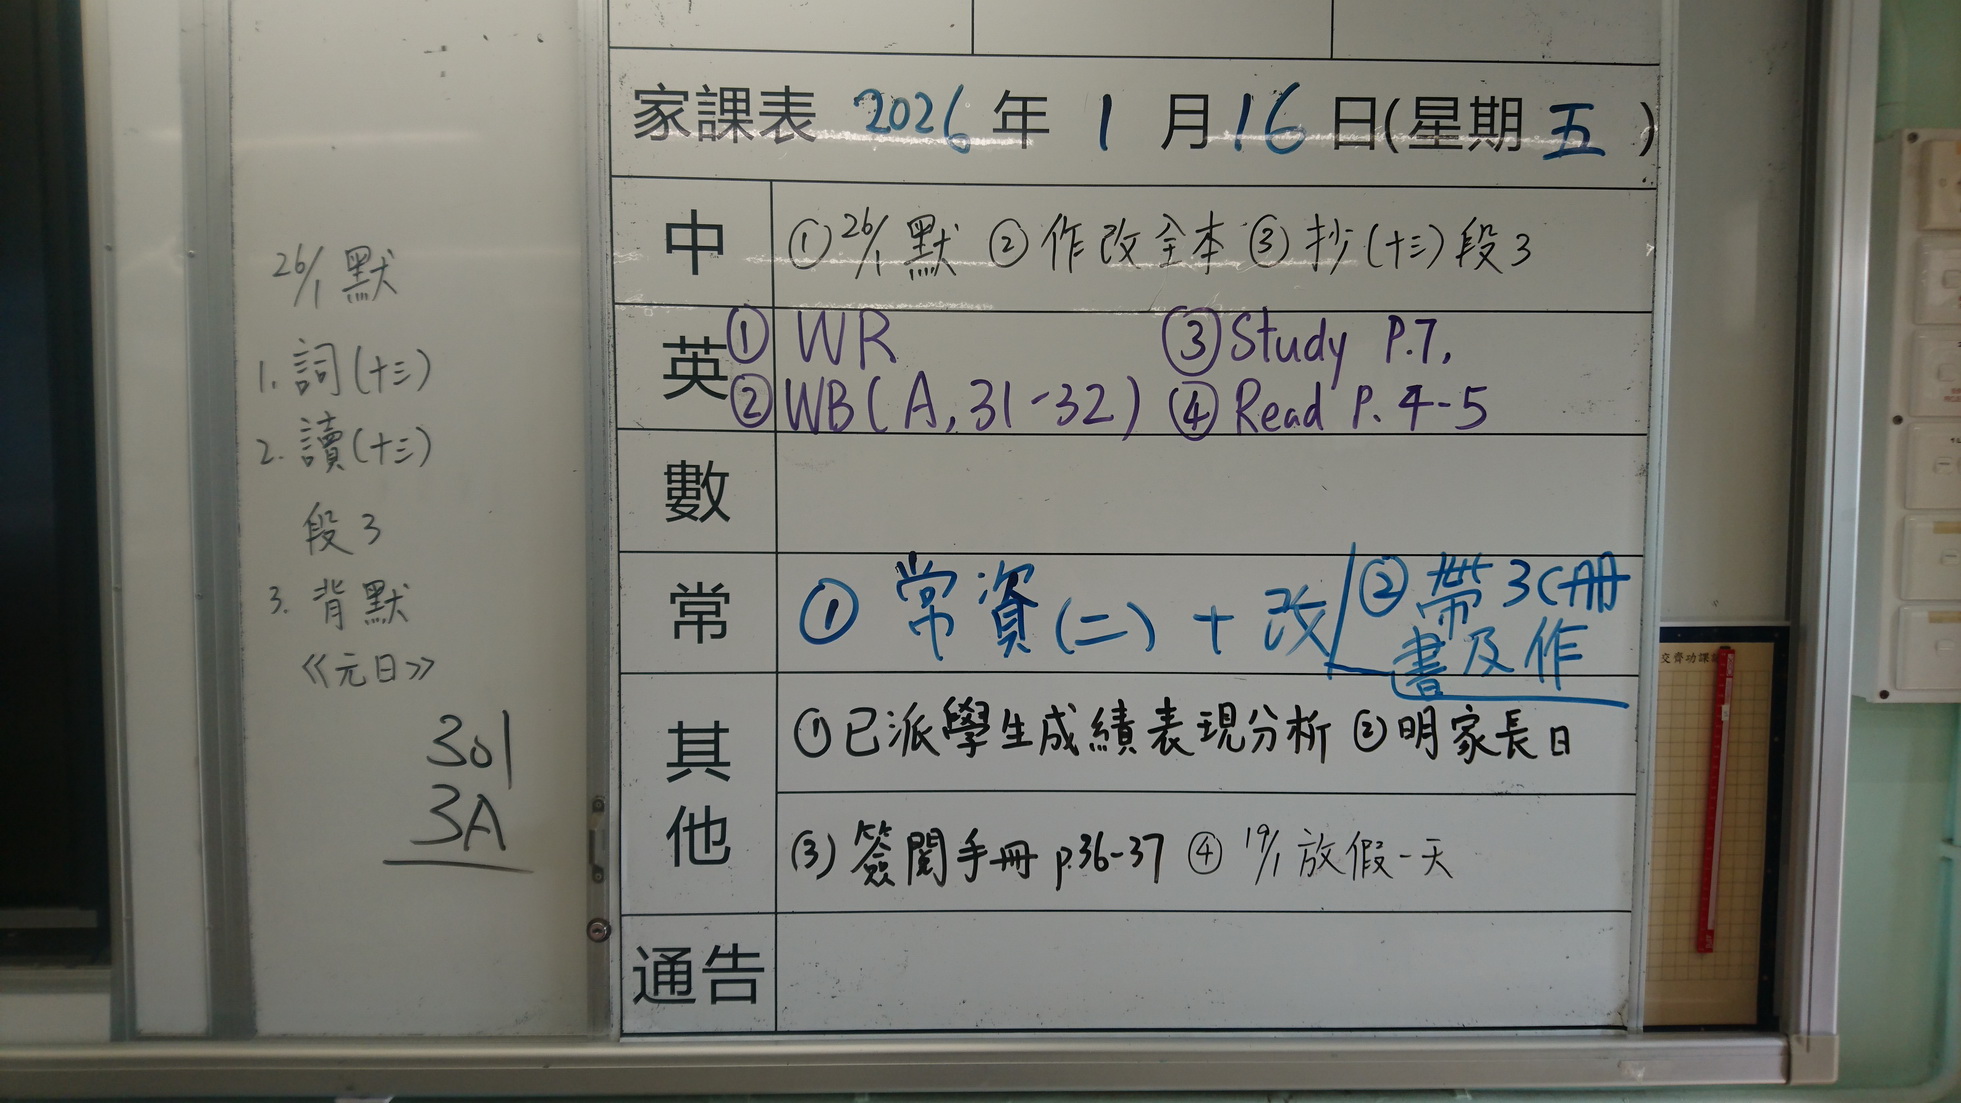 26/1 默
1. 詞(十三)
2. 讀(十三)
段3
3. 背默
《元日》
301
3A
家課表 2026 年 1 月 16 日(星期 五 )
中 ① 26/1 默 ② 作改全本 ③ 抄(十三)段3
英 ① WR ③ Study P.7,
② WB(A,31-32) ④ Read P.4-5
數
常 ① 常資(二)+改 ② 帶3C冊
書及作
其他 ① 已派學生成績表現分析 ② 明家長日
(3) 簽閱手冊 p.36-37 ④ 19/1 放假一天
通告
交齊功課